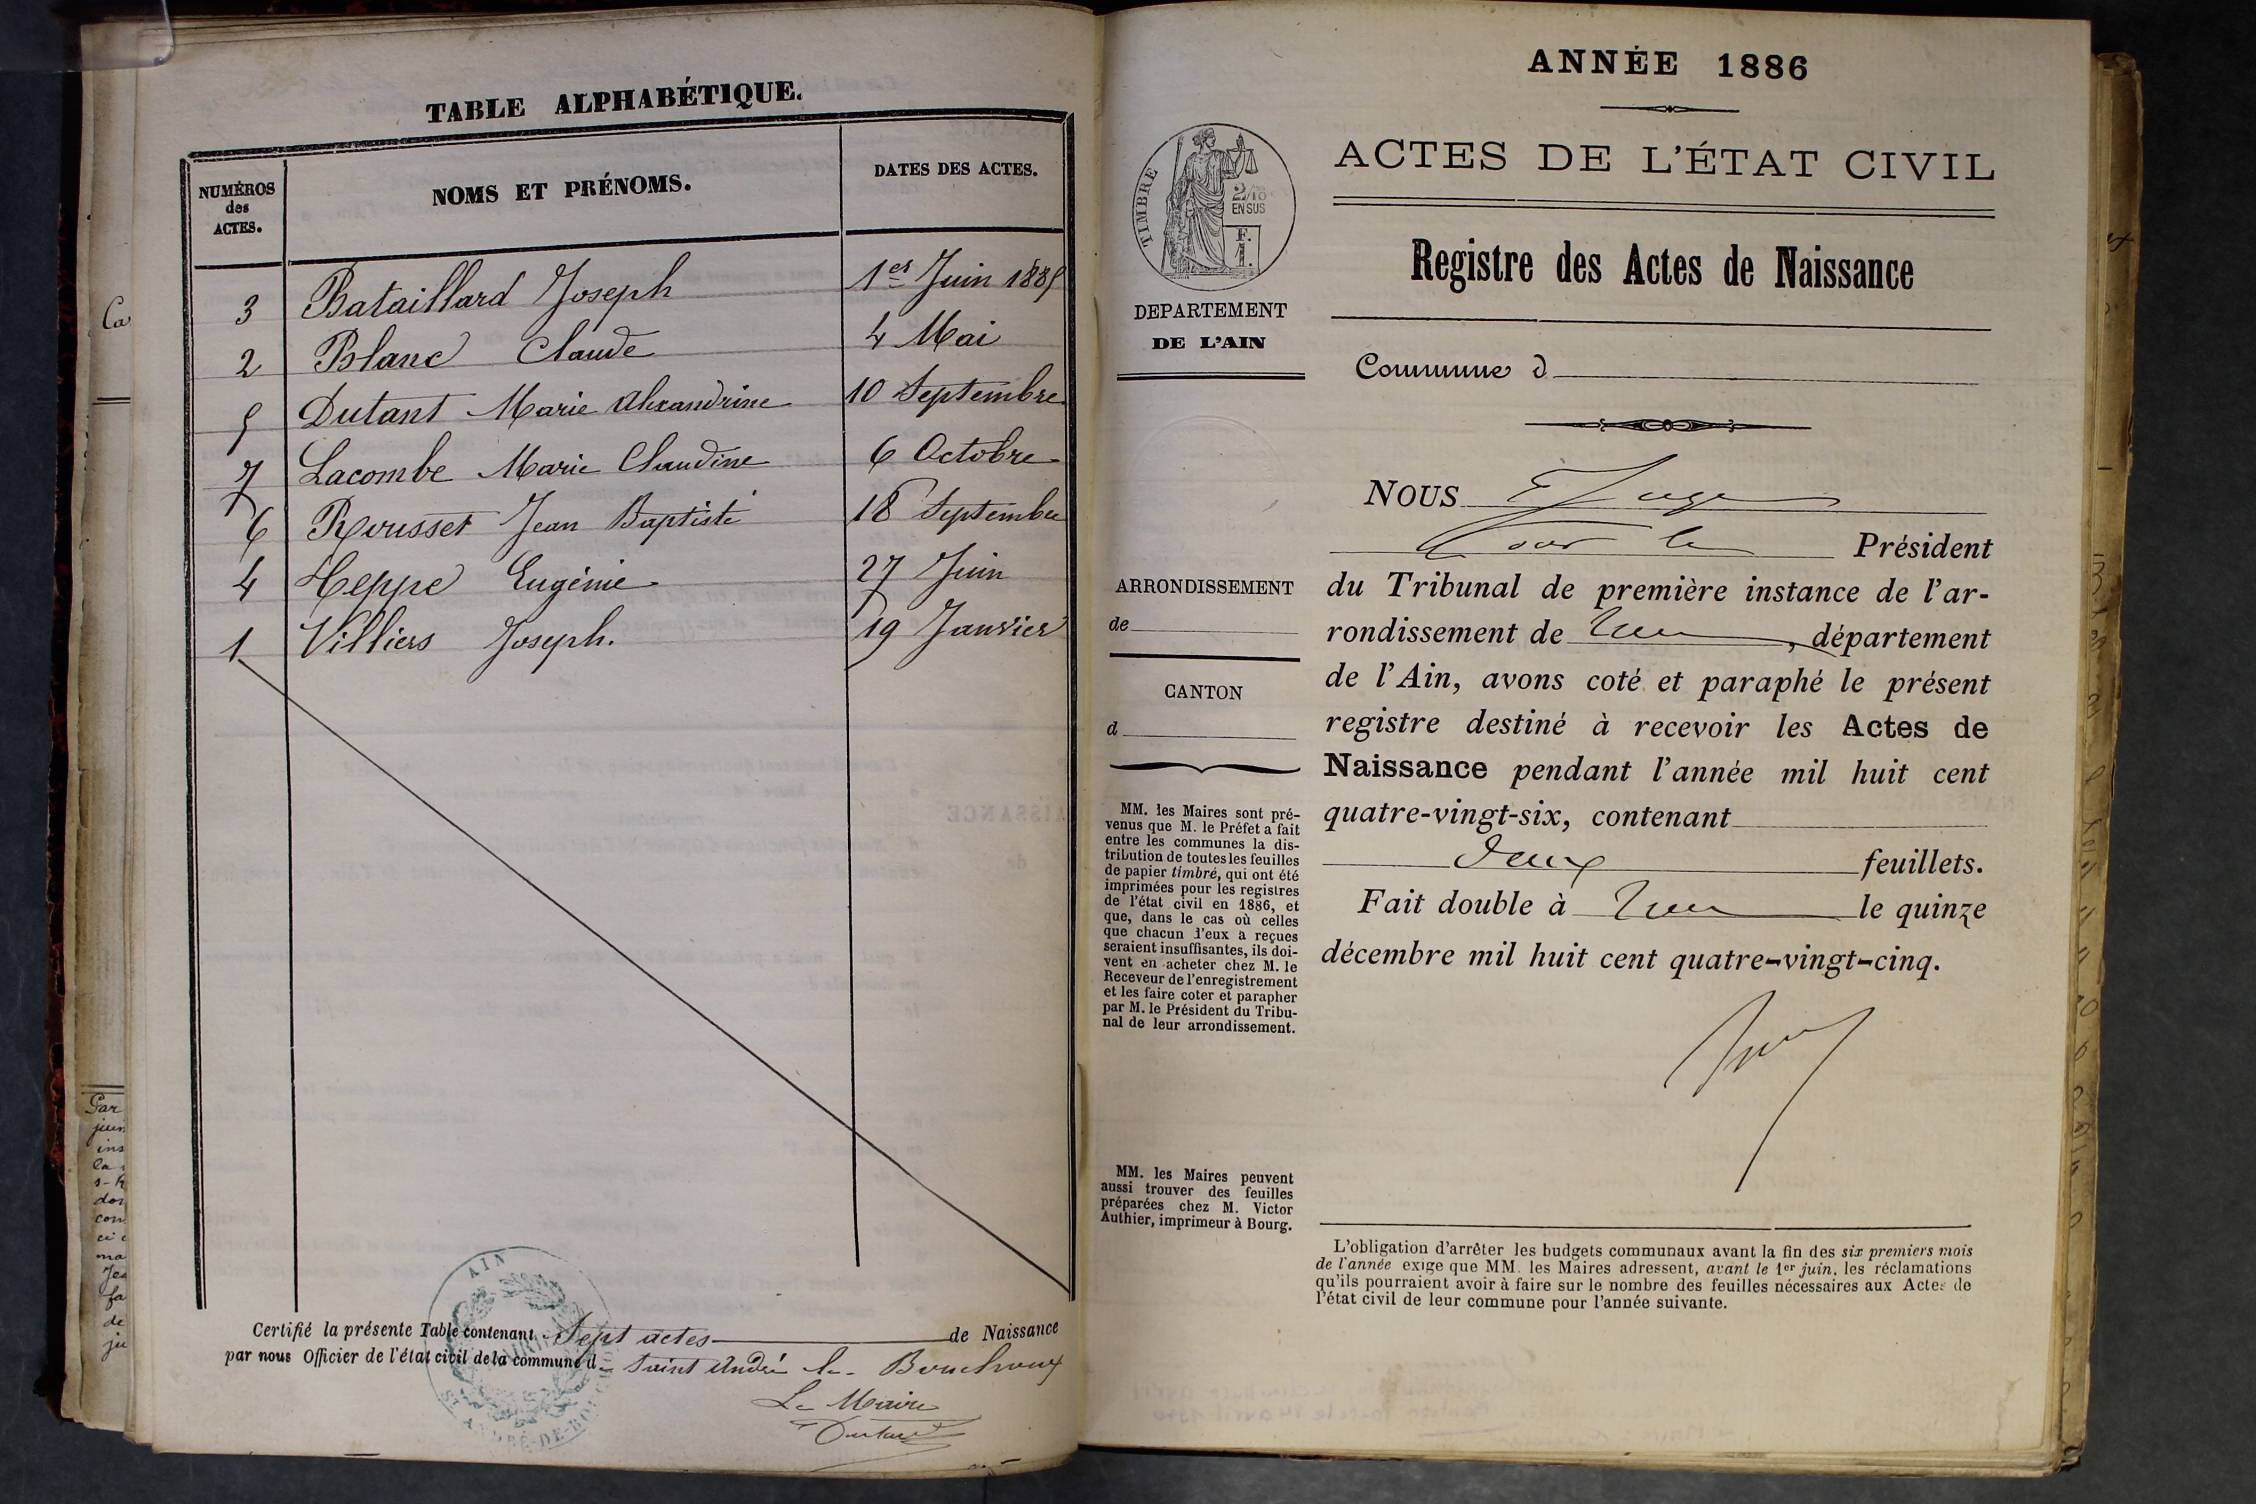 TABLE ALPHABÉTIQUE.
NUMÉROS des ACTES. NOMS ET PRÉNOMS. DATES DES ACTES.
3 Bataillard Joseph 1er Juin 1885
2 Blanc Claude 4 Mai
5 Dutant Marie Alexandrine 10 Septembre
7 Lacombe Marie Claudine 6 Octobre
6 Rousset Jean Baptiste 18 Septembre
4 Heppe Eugénie 27 Juin
1 Villiers Joseph. 19 Janvier
Certifié la présente Table contenant Sept actes de Naissance
par nous Officier de l'état civil de la commune d Saint André le Bouchoux
Le Maire
Dutant
AIN
ANNÉE 1886
TIMBRE
2/10
EN SUS
F.
1.
DEPARTEMENT
DE L'AIN
ARRONDISSEMENT
de
CANTON
d
MM. les Maires sont pré-
venus que M. le Préfet a fait
entre les communes la dis-
tribution de toutes les feuilles
de papier timbré, qui ont été
imprimées pour les registres
de l'état civil en 1886, et
que, dans le cas où celles
que chacun d'eux a reçues
seraient insuffisantes, ils doi-
vent en acheter chez M. le
Receveur de l'enregistrement
et les faire coter et parapher
par M. le Président du Tribu-
nal de leur arrondissement.
MM. les Maires peuvent
aussi trouver des feuilles
préparées chez M. Victor
Authier, imprimeur à Bourg.
ACTES DE L'ÉTAT CIVIL
Registre des Actes de Naissance
Commune d
NOUS Juge
pour le Président
du Tribunal de première instance de l'ar-
rondissement de , département
de l'Ain, avons coté et paraphé le présent
registre destiné à recevoir les Actes de
Naissance pendant l'année mil huit cent
quatre-vingt-six, contenant
deux feuillets.
Fait double à le quinze
décembre mil huit cent quatre-vingt-cinq.
L'obligation d'arrêter les budgets communaux avant la fin des six premiers mois
de l'année exige que MM. les Maires adressent, avant le 1er juin, les réclamations
qu'ils pourraient avoir à faire sur le nombre des feuilles nécessaires aux Actes de
l'état civil de leur commune pour l'année suivante.